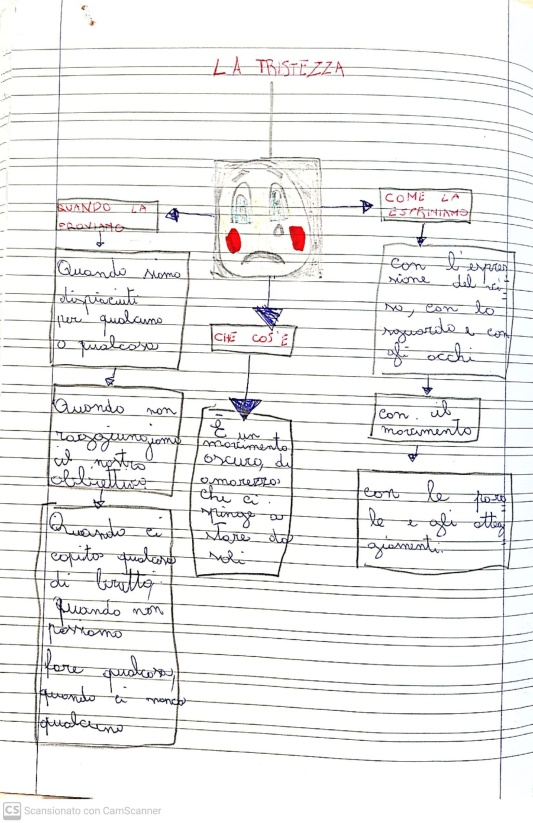 LA TRISTEZZA
QUANDO LA
PROVIAMO
Quando siamo
dispiaciuti
per qualcuno
o qualcosa
Quando non
raggiungiamo
il nostro
obbiettivo
Quando ci
capita qualcosa
di brutto,
Quando non
possiamo
fare qualcosa,
quando ci manca
qualcuno
CHE COS'È
È un
movimento
oscuro, di
amarezza
che ci
spinge a
stare da
soli
COME LA
ESPRIMIAMO
con l'espres-
sione del vi-
so, con lo
sguardo e con
gli occhi
con il
movimento
con le paro
le e gli atteg
giamenti.
CS Scansionato con CamScanner